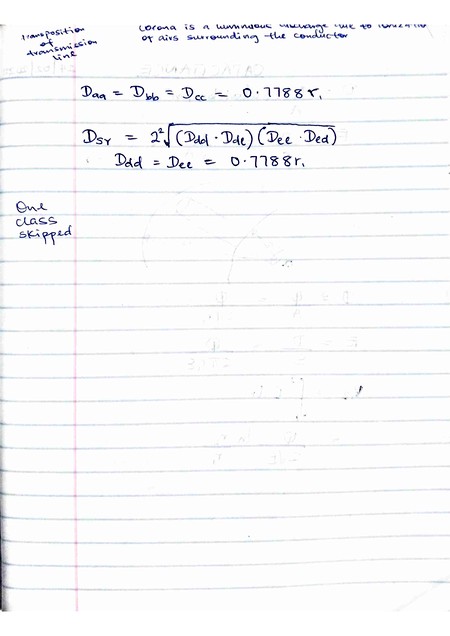 transposition
of
transmission
line
corona is a luminous discharge due to
of airs surrounding the conductor
Daa = Dbb = Dcc = 0.7788r,
Dsy = 2²√(Ddd · Dde)(Dee · Ded)
Ddd = Dee = 0.7788r,
One
class
skipped